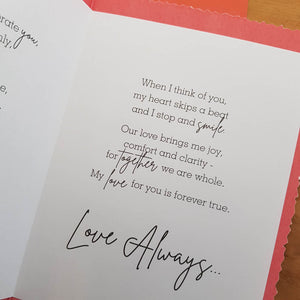 erate you,
nly,
e,
When I think of you,
my heart skips a beat
and I stop and smile.
Our love brings me joy,
comfort and clarity -
for together we are whole.
My love for you is forever true.
Love Always...